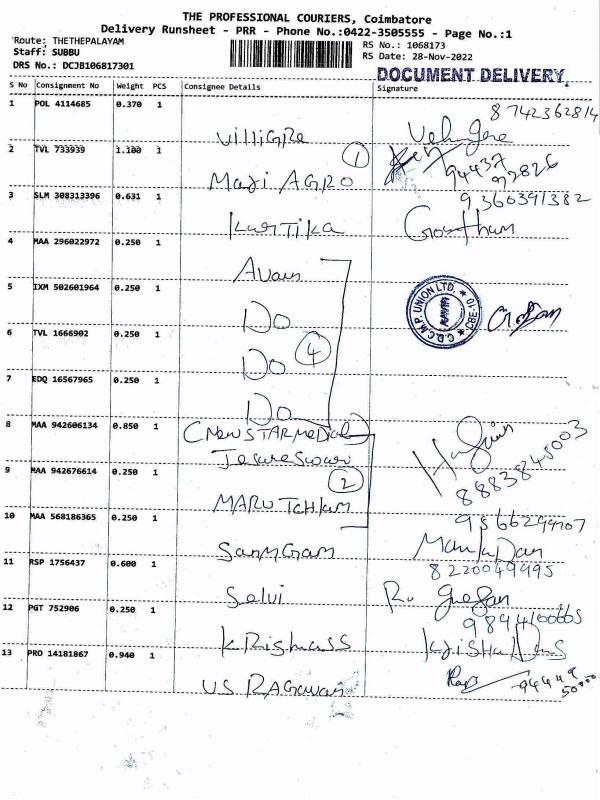 THE PROFESSIONAL COURIERS, Coimbatore
Delivery Runsheet - PRR - Phone No.:0422-3505555 - Page No.:1
Route: THETHEPALAYAM
RS No.: 1068173
Staff: SUBBU
RS Date: 28-Nov-2022
DRS No.: DCJB106817301
DOCUMENT DELIVERY
S No Consignment No Weight PCS Consignee Details Signature
1 POL 4114685 0.370 1
8742362814
VilliGRe
2 TVL 733939 1.100 1
1
94437
92826
Maji AGRO
3 SLM 308313396 0.631 1
9360391382
KarTika
Gowtham
4 MAA 296022972 0.250 1
Avain
5 IXM 502601964 0.250 1
C.D.C.M.P. UNION LTD. * CBE-10 *
Do
6 TVL 1666902 0.250 1
4
Do
7 EDQ 16567965 0.250 1
Do
8 MAA 942606134 0.850 1
(New STAR medical)
9 MAA 942676614 0.250 1
2
8883845003
10 MAA 568186365 0.250 1
9566299707
11 RSP 1756437 0.600 1
8220049995
Selvi
12 PGT 752906 0.250 1
9894100605
13 PRO 14181867 0.940 1
US RAGawan